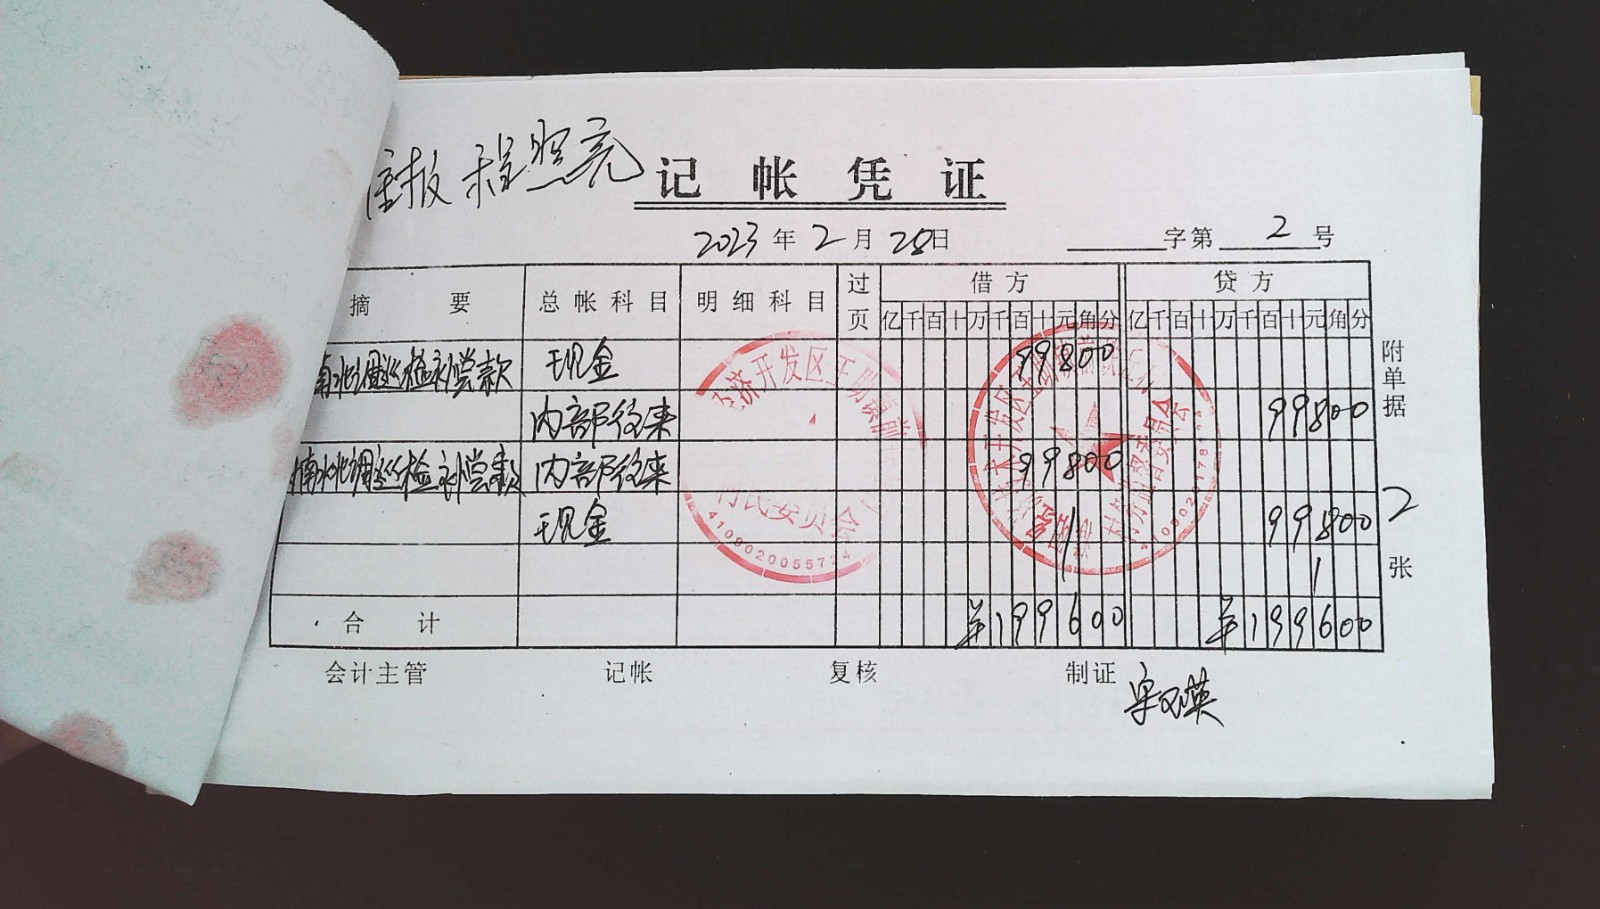 程照亮
记帐凭证
2023年2月28日 字第2号
摘要 总帐科目 明细科目 过页 借方 贷方
亿千百十万千百十元角分 亿千百十万千百十元角分
南水北调巡检补偿款 现金 99800
内部往来 99800
南水北调巡检补偿款 内部往来 99800
现金 99800
合计 ¥199600 ¥199600
附单据2张
会计主管 记帐 复核 制证
4109020055724